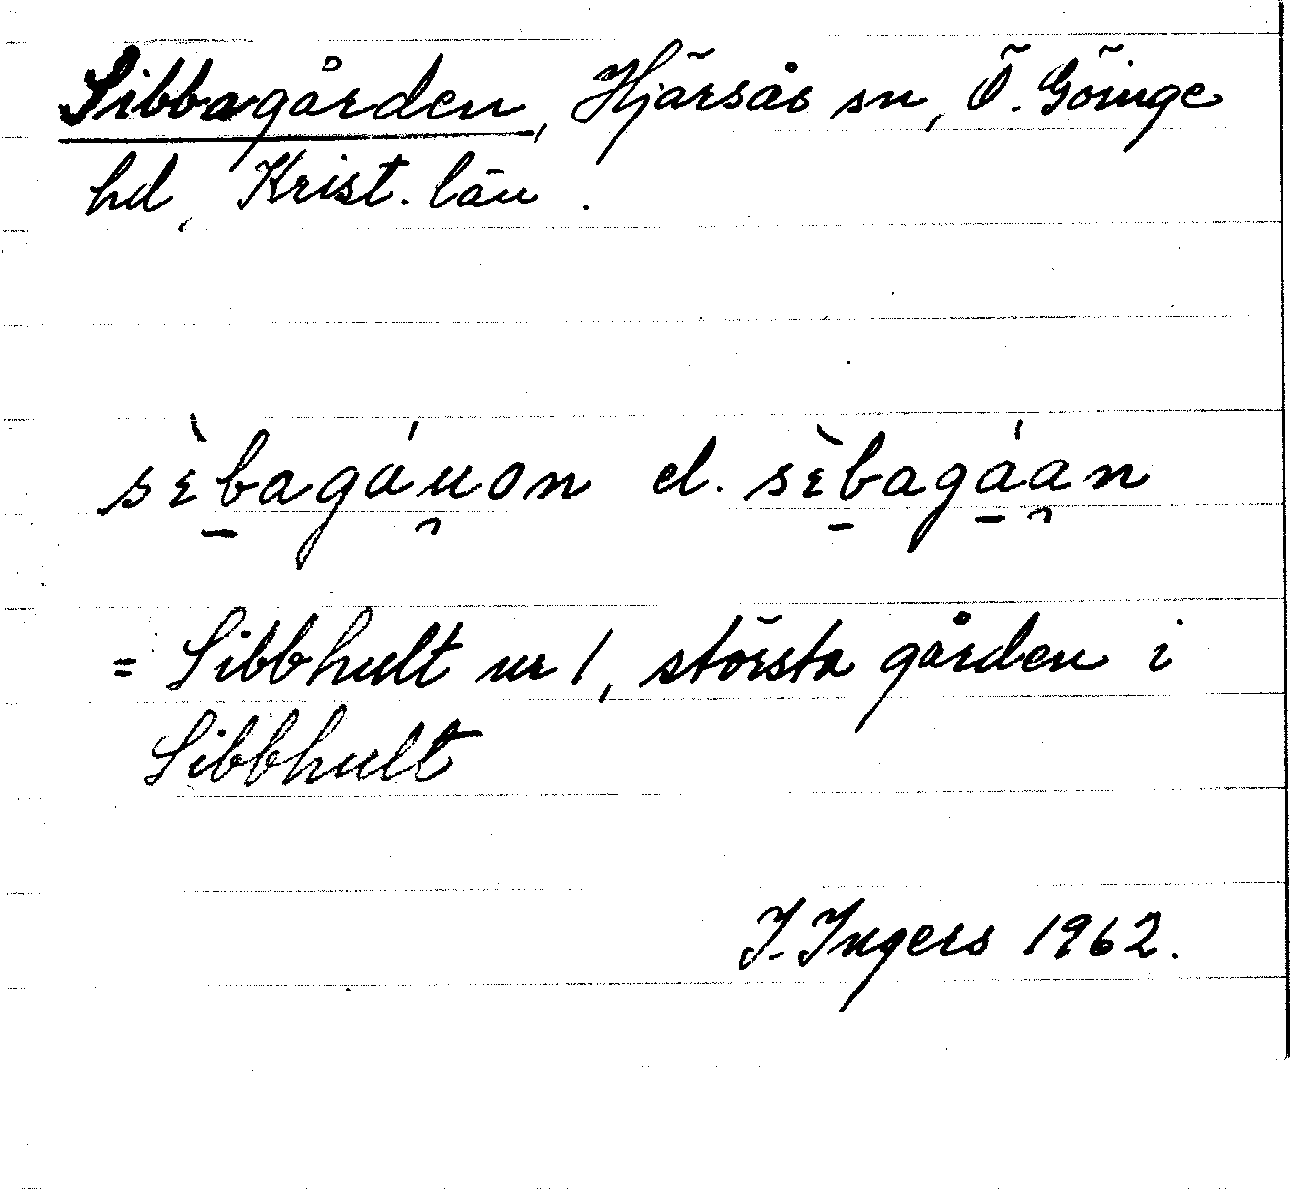 Sibbagården, Hjärsås sn, Ö. Göinge
hd, Krist. län.
sὲb̠agáu̯on el. sὲb̠agá̠a̯n
= Sibbhult nr 1, största gården i
Sibbhult
I. Ingers 1962.